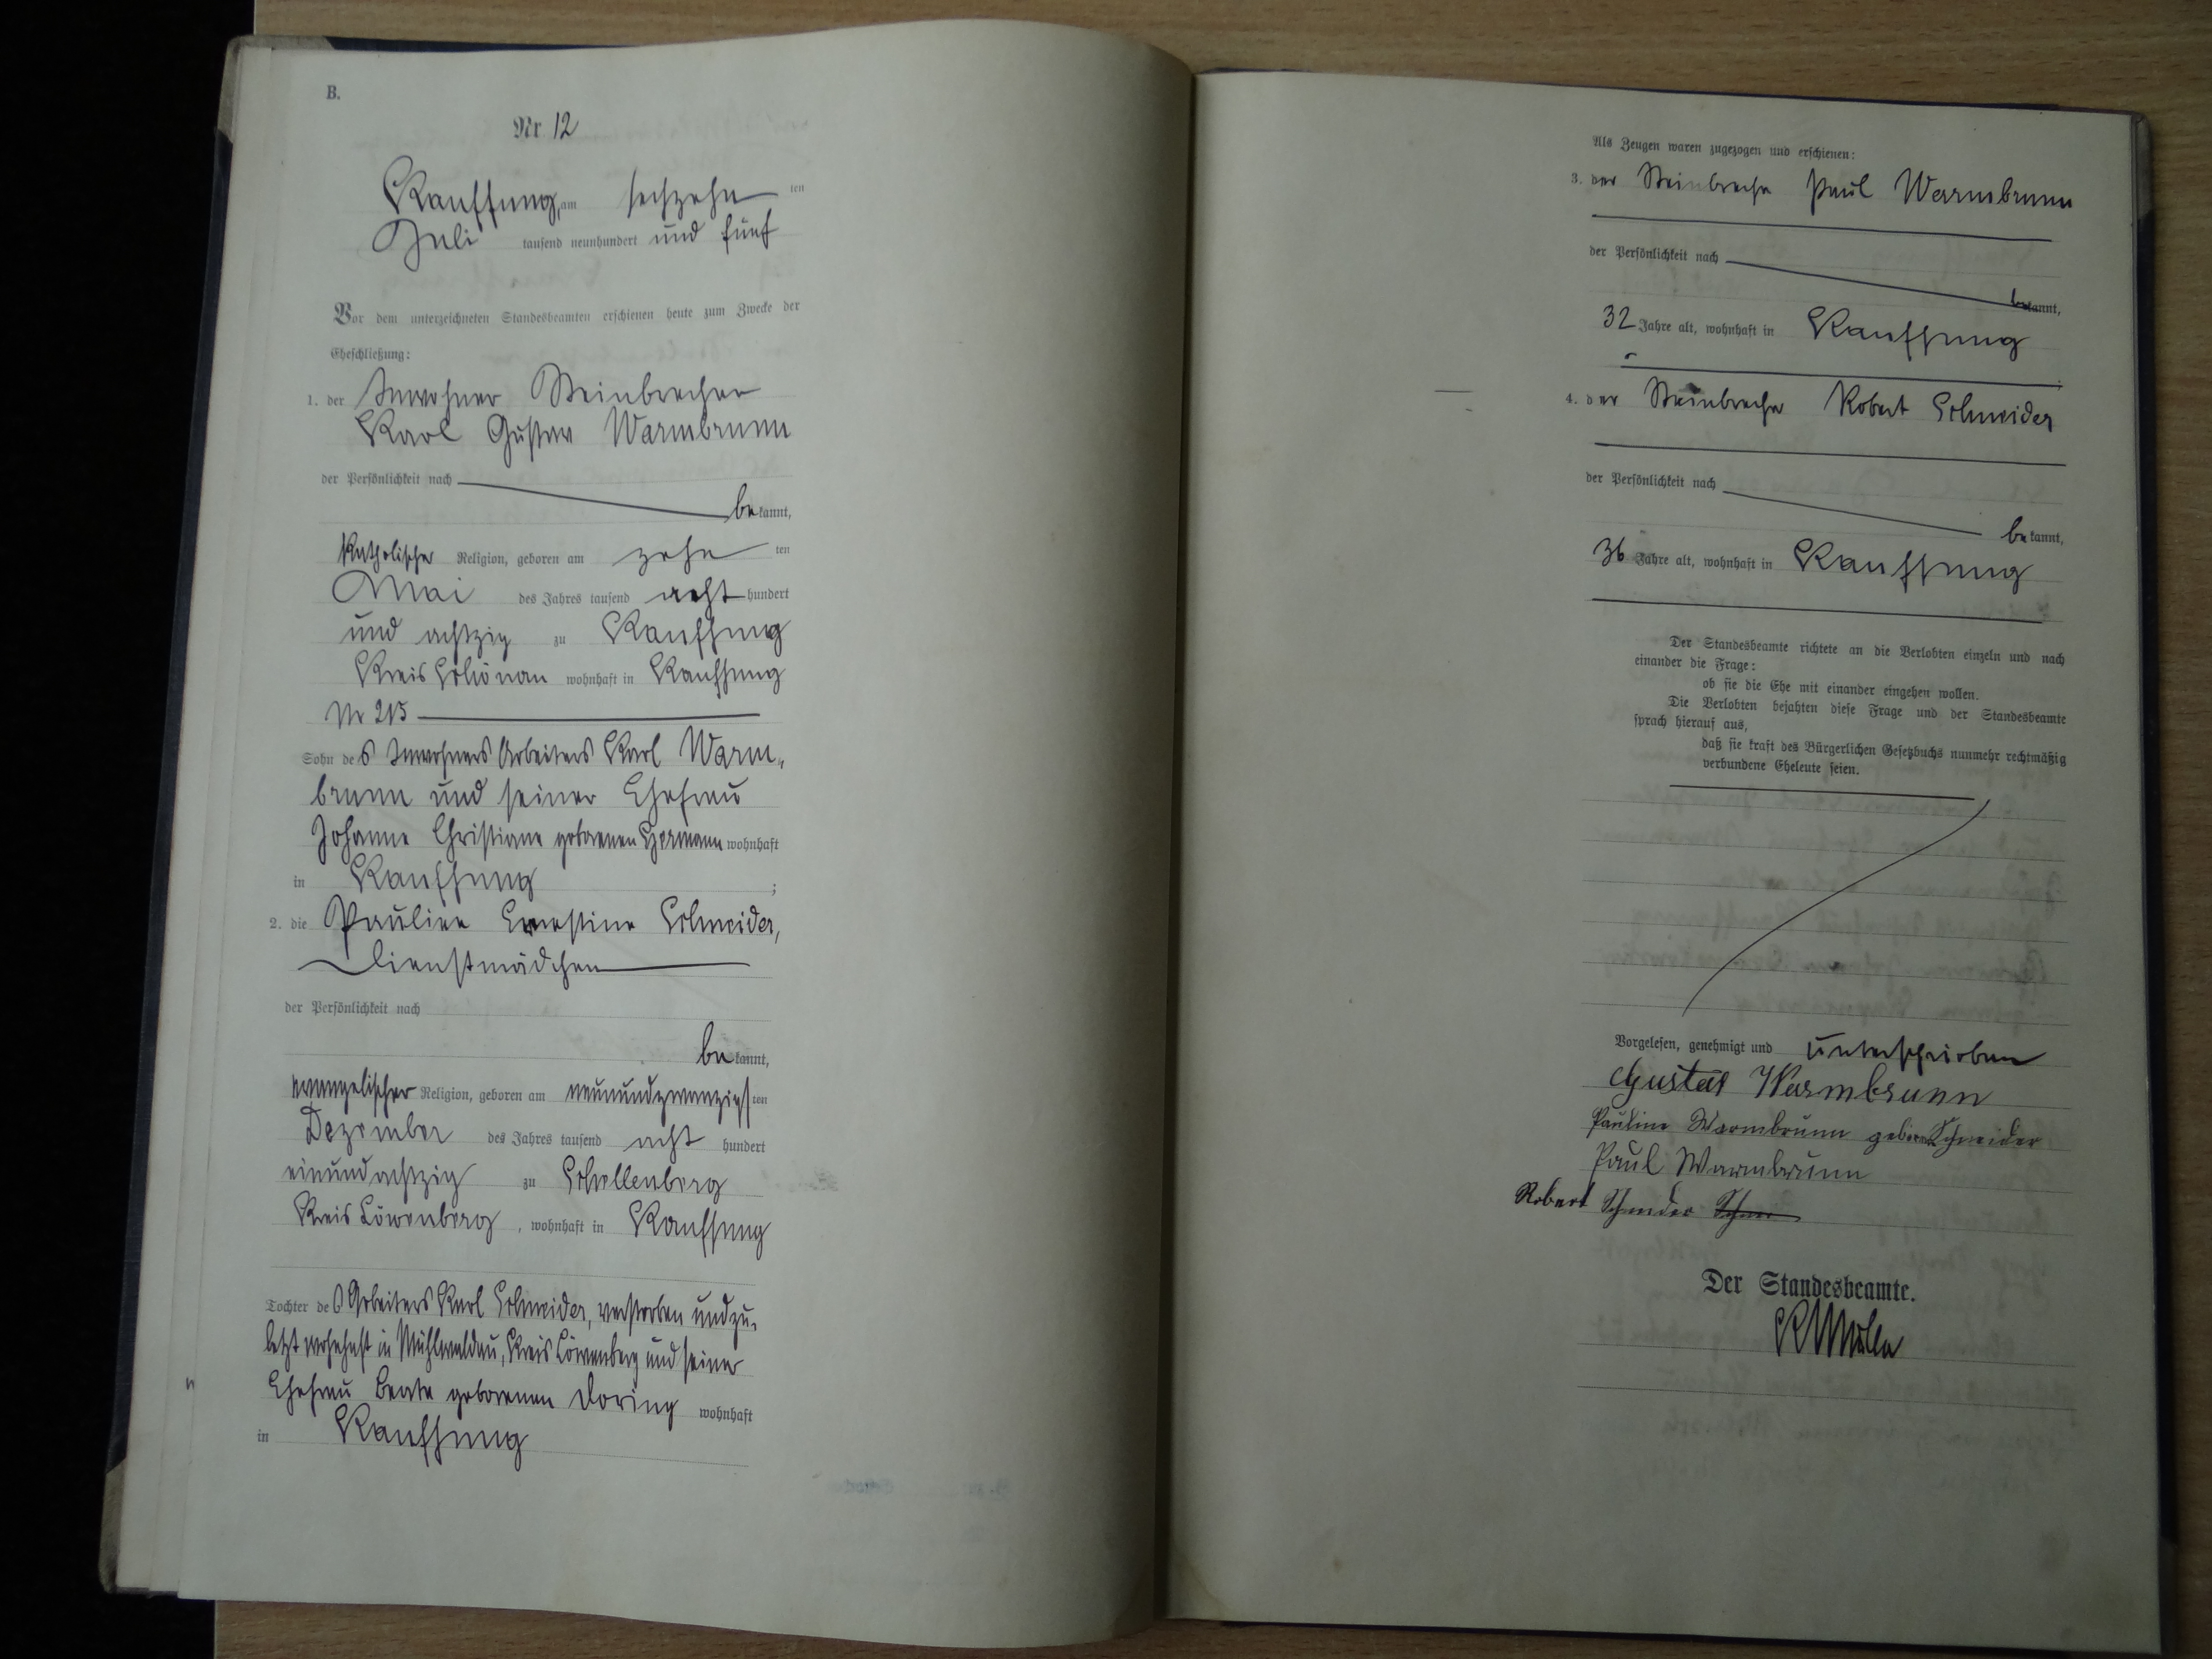 B.
Nr 12
Kauffung, am sechzehn ten
Juli tausend neunhundert und fünf
Vor dem unterzeichneten Standesbeamten erschienen heute zum Zwecke der
Eheschließung:
1. der Inwohner Steinbrecher
Karl Gustav Warmbrunn
der Persönlichkeit nach
be kannt,
katholischer Religion, geboren am zehn ten
Mai des Jahres tausend acht hundert
und achtzig zu Kauffung
Kreis Schönau wohnhaft in Kauffung
Nr 215
Sohn des Inwohners Arbeiters Karl Warm-
brunn und seiner Ehefrau
Johanne Christiane geborenen Hermann wohnhaft
in Kauffung ;
2. die Pauline Ernestine Schneider,
Dienstmädchen
der Persönlichkeit nach
be kannt,
evangelischer Religion, geboren am neunundzwanzigsten
Dezember des Jahres tausend acht hundert
einundachtzig zu Schellenberg
Kreis Löwenberg, wohnhaft in Kauffung
Tochter des Arbeiters Karl Schneider, verstorben und zu-
letzt wohnhaft in Mühlwaldau, Kreis Löwenberg und seiner
Ehefrau Beate geborenen Döring wohnhaft
in Kauffung
Als Zeugen waren zugezogen und erschienen:
3. der Steinbrecher Paul Warmbrunn
der Persönlichkeit nach
be kannt,
32 Jahre alt, wohnhaft in Kauffung
4. der Steinbrecher Robert Schneider
der Persönlichkeit nach
be kannt,
36 Jahre alt, wohnhaft in Kauffung
Der Standesbeamte richtete an die Verlobten einzeln und nach
einander die Frage:
ob sie die Ehe mit einander eingehen wollen.
Die Verlobten bejahten diese Frage und der Standesbeamte
sprach hierauf aus,
daß sie kraft des Bürgerlichen Gesetzbuchs nunmehr rechtmäßig
verbundene Eheleute seien.
Vorgelesen, genehmigt und unterschrieben
Gustav Warmbrunn
Pauline Warmbrunn geborne Schneider
Paul Warmbrunn
Robert Schneider Schnei
Der Standesbeamte.